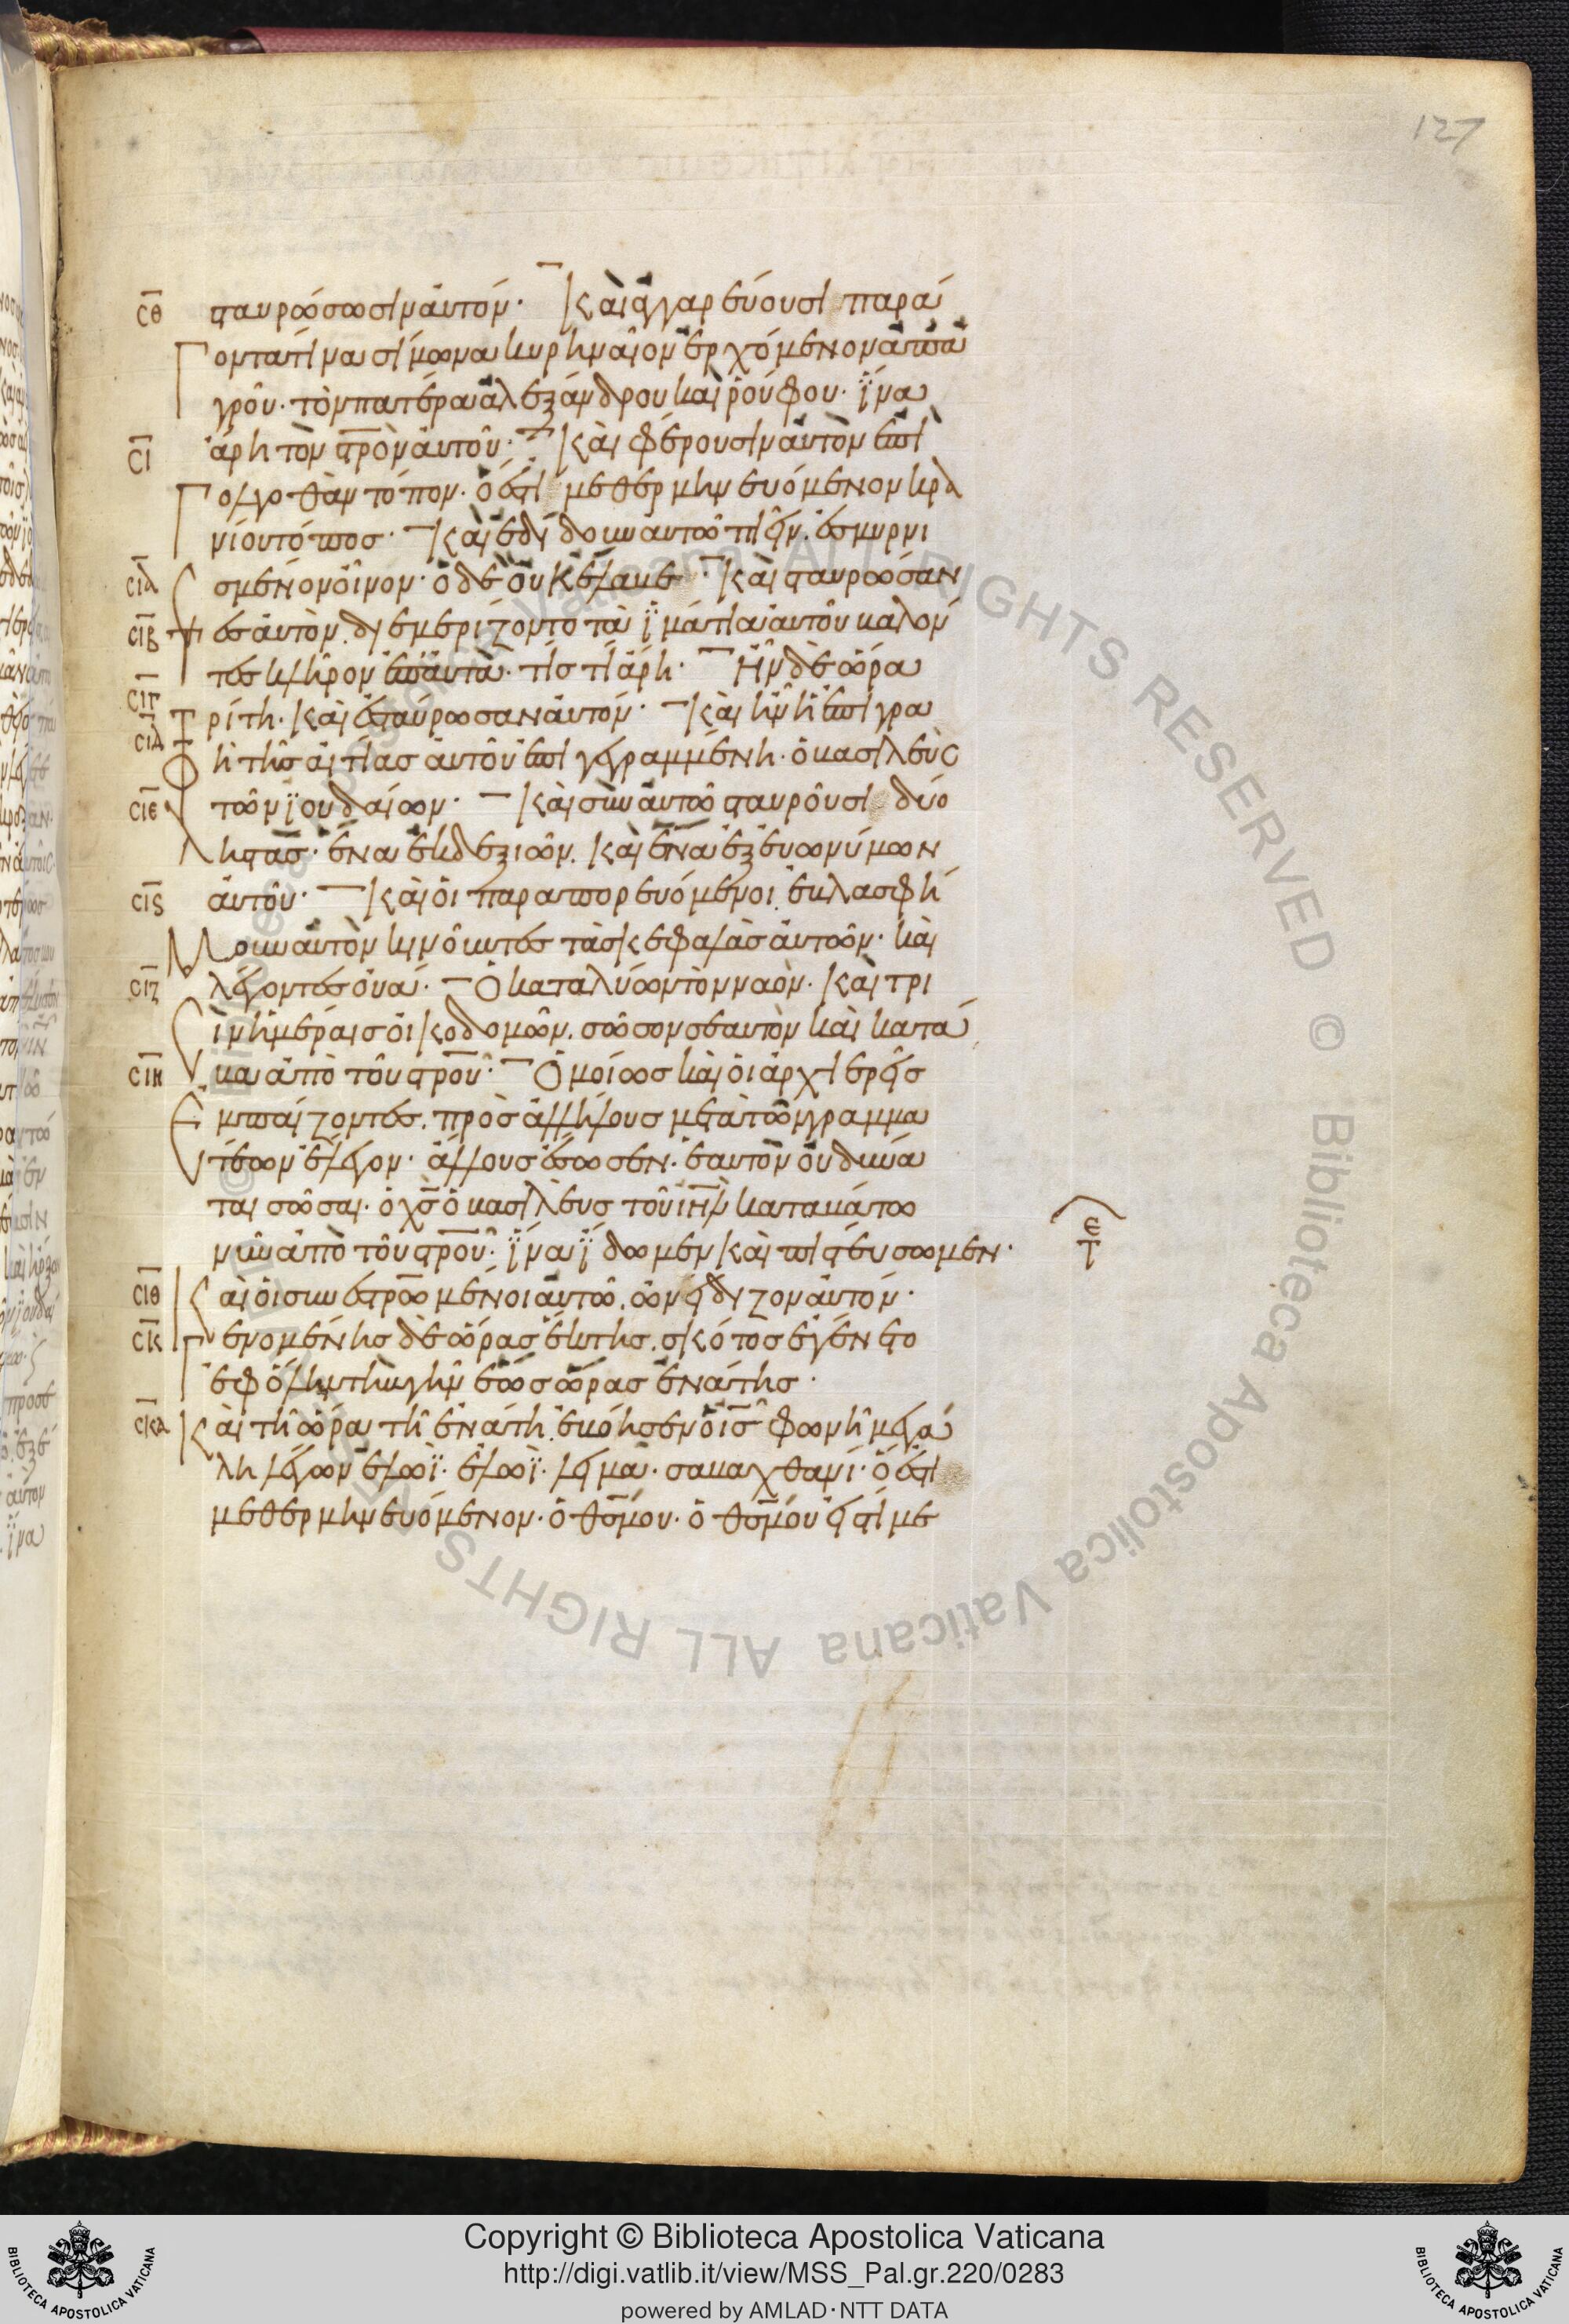 127
σθ σταυρώσωσιν αὐτόν· καὶ ἀγγαρεύουσι παρά
γοντά τινα σίμωνα κυρηναῖον ἐρχόμενον ἀπ ἀ
γροῦ· τὸν πατέρα ἀλεξάνδρου καὶ ῥούφου· ἵ̈να
σι ἄρη τὸν στ̅ρ̅ὸν αὐτοῦ· καὶ φέρουσιν αὐτὸν ἐπὶ
Γολγοθὰν τόπον· ὅ ἐστι μεθερμηνευόμενον κρα
νίου τόπος· καὶ ἐδίδουν αὐτῶ πιεῖν ἐσμυρνι
σια σμένον οἶνον· ὁ δὲ οὐκ ἔλαβε· καὶ σταυρώσαν
σιβ τες αὐτὸν διεμερίζοντο τὰ ἱ̈μάτια αὐτοῦ βαλόν
τες κλῆρον ἐπ αὐτὰ· τίς τί ἄρη· Ἦν δὲ ὥρα
σιγ τρίτη· καὶ ἐσταύρωσαν αὐτόν· καὶ ἦν ἡ ἐπιγρα
σιδ φὴ τῆς αἰτίας αὐτοῦ ἐπιγεγραμμένη· ὁ βασιλεὺς
σιε τῶν ϊουδαίων· καὶ σὺν αὐτῶ σταυροῦσι δύο
ληστάς· ἕνα ἐκ δεξιῶν· καὶ ἕνα ἐξ εὐωνύμων
σις αὐτοῦ· καὶ οἱ παραπορευόμενοι ἐβλασφή
μουν αὐτὸν κινοῦντες τὰς κεφαλὰς αὐτῶν· καὶ
σιζ λέγοντες οὐά· Ὁ καταλύων τὸν ναὸν· καὶ τρι
σὶν ἡμέραις οἰκοδομῶν· σῶσον σεαυτὸν καὶ κατά
σιη βα ἀπὸ τοῦ στ̅ρ̅οῦ· Ὁμοίως καὶ οἱ ἀρχιερεῖς
ἐμπαίζοντες πρὸς ἀλλήλους μετὰ τῶν γραμμα
τέων ἔλεγον· ἄλλους ἔσωσεν· ἑαυτὸν οὐ δύνα
ται σῶσαι· ὁ χ̅ς̅ ὁ βασιλεὺς τοῦ ι̅η̅λ̅ καταβάτω
νῦν ἀπὸ τοῦ στ̅ρ̅οῦ· ἵ̈να ἴ̈δωμεν καὶ πιστεύσωμεν·
σιθ καὶ οἱ συνεστ̅ρ̅ωμένοι αὐτῶ, ὠνείδιζον αὐτόν·
σκ Γενομένης δὲ ὥρας ἕκτης, σκότος ἐγένετο
ἐφ ὅλην τὴν γῆν ἕως ὥρας ἐνάτης·
σκα καὶ τῆ ὥρα τῆ ἐνάτη ἐβόησεν ὁ ι̅ς̅ φωνῆ μεγά
λη λέγων ἐλωῒ· ἐλωῒ· λεῖμὰ· σαβαχθανί· ὅ ἐστι
μεθερμηνευόμενον· ὁ θ̅ς̅ μου· ὁ θ̅ς̅ μου εἰς τί με
Copyright © Biblioteca Apostolica Vaticana
http://digi.vatlib.it/view/MSS_Pal.gr.220/0283
powered by AMLAD·NTT DATA
BIBLIOTECA APOSTOLICA VATICANA
BIBLIOTECA APOSTOLICA VATICANA
© Biblioteca Apostolica Vaticana ALL RIGHTS RESERVED © Biblioteca Apostolica Vaticana ALL RIGHTS RESERVED